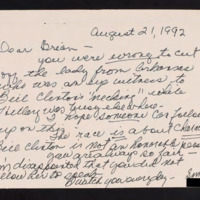 August 21, 1992
Dear Brian -
you were wrong to cut
off the lady from Arkansas
who was an eye witness to
Bill Clinton's "necking" while
Hillary was
I hope someone can follow
up on this
The race is about character
Bill Clinton is not an honorable
you are always so fair -
I'm disappointed that you did not
allow her to speak.
I watch you everyday -